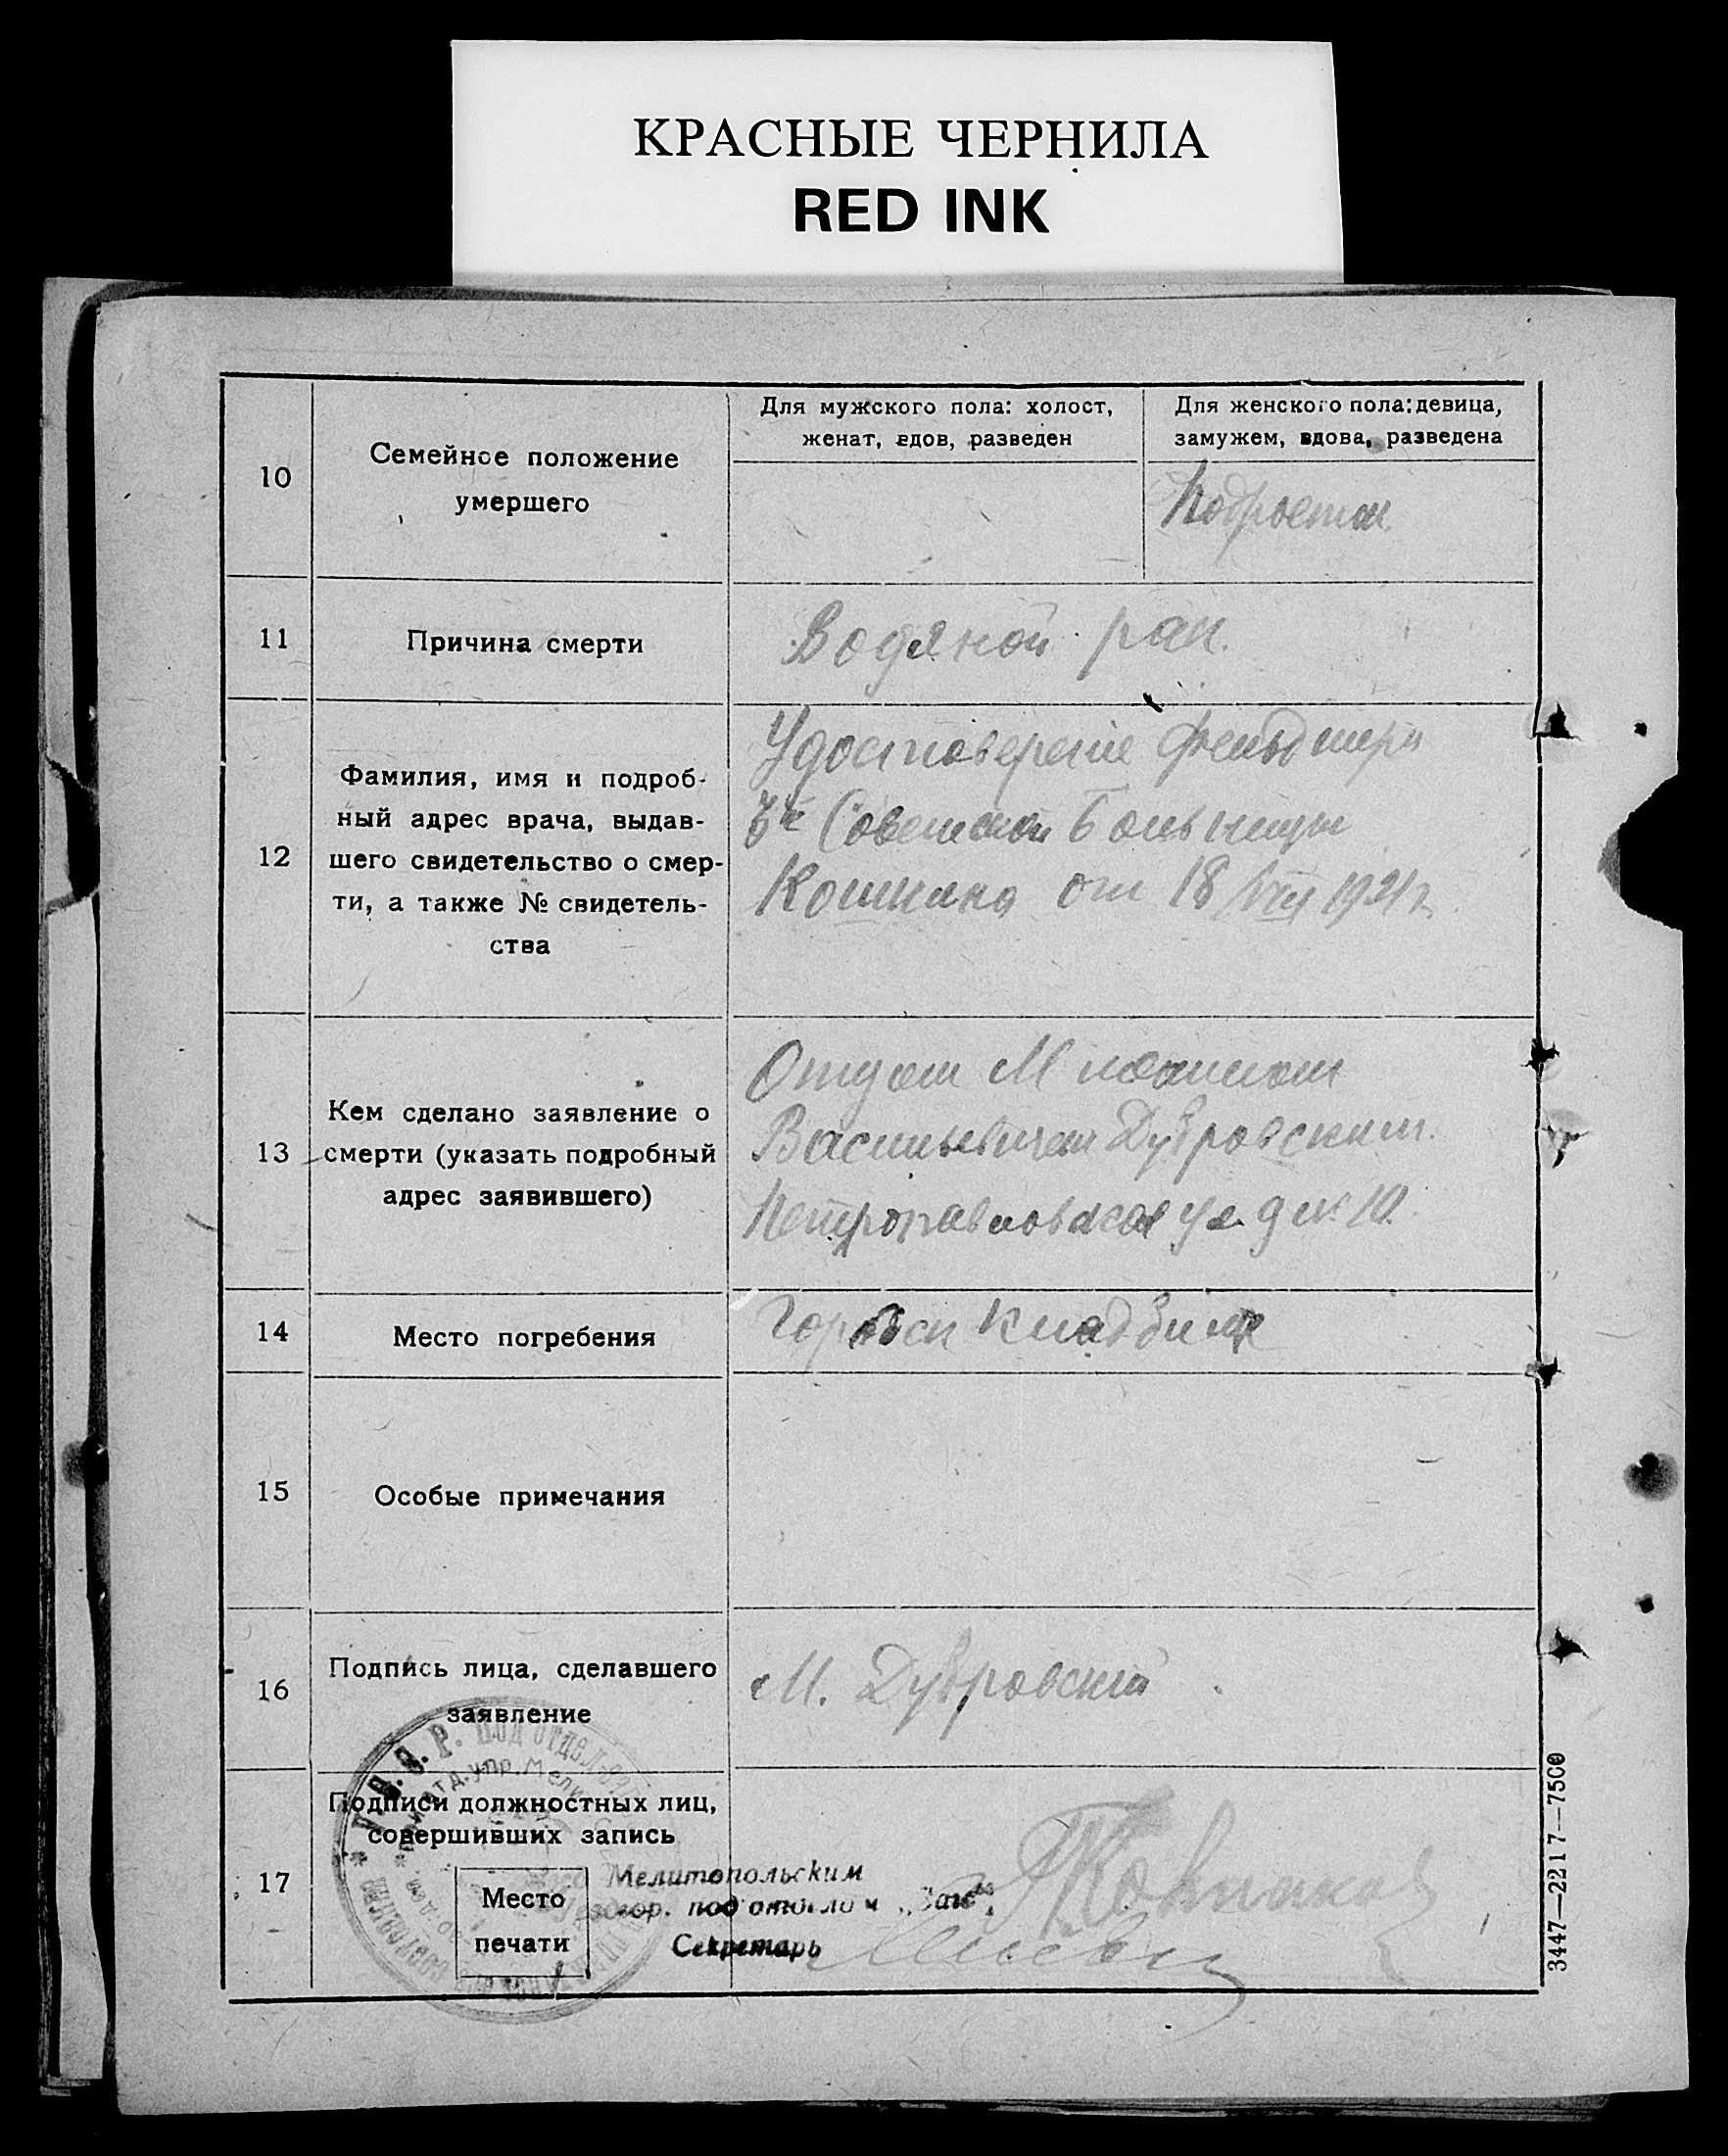 КРАСНЫЕ ЧЕРНИЛА
RED INK
10
Семейное положение
умершего
Для мужского пола: холост,
женат, вдов, разведен
Для женского пола: девица,
замужем, вдова, разведена
Подросток
11
Причина смерти
Водяной рак.
12
Фамилия, имя и подроб-
ный адрес врача, выдав-
шего свидетельство о смер-
ти, а также № свидетель-
ства
Удостоверение Фельдшера
Советской Больницы
Кошкина от 18/VIII 1921 г.
13
Кем сделано заявление о
смерти (указать подробный
адрес заявившего)
Отцом Михаилом
Васильевичем Дубровским.
Петропавловская ул. д № 10.
14
Место погребения
Городск Кладбище
15
Особые примечания
16
Подпись лица, сделавшего
заявление
М. Дубровский
17
Подписи должностных лиц,
совершивших запись
Место
печати
Мелитопольским
подотделом „Загс“
Секретарь
3447—2217—7500